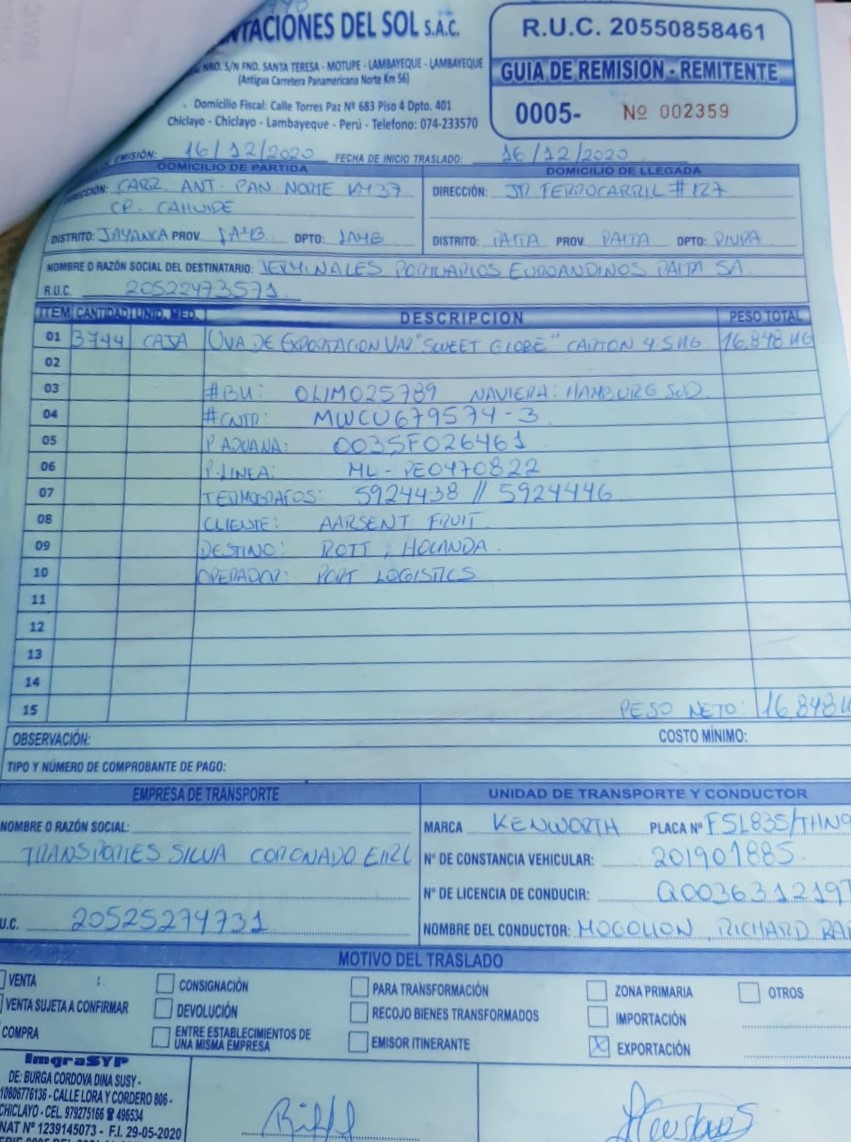 TACIONES DEL SOL S.A.C.
NRO. S/N FND. SANTA TERESA - MOTUPE - LAMBAYEQUE - LAMBAYEQUE
(Antigua Carretera Panamericana Norte Km 56)
Domicilio Fiscal: Calle Torres Paz Nº 683 Piso 4 Dpto. 401
Chiclayo - Chiclayo - Lambayeque - Perú - Telefono: 074-233570
R.U.C. 20550858461
GUIA DE REMISION - REMITENTE
0005- Nº 002359
EMISIÓN: 16/12/2020 FECHA DE INICIO TRASLADO: 16/12/2020
DOMICILIO DE PARTIDA
DIRECCIÓN: CARR. ANT. PAN. NORTE KM 37
CP. CAHUIDE
DISTRITO: JAYANCA PROV. LAMB. DPTO: LAMB
DOMICILIO DE LLEGADA
DIRECCIÓN: JR FERROCARRIL # 127
DISTRITO: PAITA PROV. PAITA DPTO: PIURA
NOMBRE O RAZÓN SOCIAL DEL DESTINATARIO: TERMINALES PORTUARIOS EUROANDINOS PAITA SA.
R.U.C. 20522473571
ITEM CANTIDAD UNID. MED. DESCRIPCION PESO TOTAL
01 3744 CAJA UVA DE EXPORTACION VAR "SWEET GLOBE" CARTON 4.5 KG 16,848 KG
02
03 #BK: OLIM025789 NAVIERA: HAMBURG SUD.
04 #CNTR: MWCU679574-3
05 P. ADUANA: 0035F026461
06 P. LINEA: ML-PE0470822
07 TERMOGRAFOS: 5924438 // 5924446
08 CLIENTE: AARSENT FRUIT.
09 DESTINO: ROTT, HOLANDA.
10 OPERADOR: PORT LOGISTICS
11
12
13
14
15 PESO NETO: 16,848 K
OBSERVACIÓN: COSTO MÍNIMO:
TIPO Y NÚMERO DE COMPROBANTE DE PAGO:
EMPRESA DE TRANSPORTE
NOMBRE O RAZÓN SOCIAL:
TRANSPORTES SILVA CORONADO EIRL
U.C. 20525274731
UNIDAD DE TRANSPORTE Y CONDUCTOR
MARCA KENWORTH PLACA Nº F5L835/THN9
Nº DE CONSTANCIA VEHICULAR: 201901885
Nº DE LICENCIA DE CONDUCIR: Q0036312197
NOMBRE DEL CONDUCTOR: MOGOLLON, RICHARD RA
MOTIVO DEL TRASLADO
VENTA
VENTA SUJETA A CONFIRMAR
COMPRA
CONSIGNACIÓN
DEVOLUCIÓN
ENTRE ESTABLECIMIENTOS DE
UNA MISMA EMPRESA
PARA TRANSFORMACIÓN
RECOJO BIENES TRANSFORMADOS
EMISOR ITINERANTE
ZONA PRIMARIA
IMPORTACIÓN
X EXPORTACIÓN
OTROS
ImgraSYP
DE: BURGA CORDOVA DINA SUSY -
10806776136 - CALLE LORA Y CORDERO 806 -
CHICLAYO - CEL. 979275166 ☎ 496534
NAT Nº 1239145073 - F.I. 29-05-2020